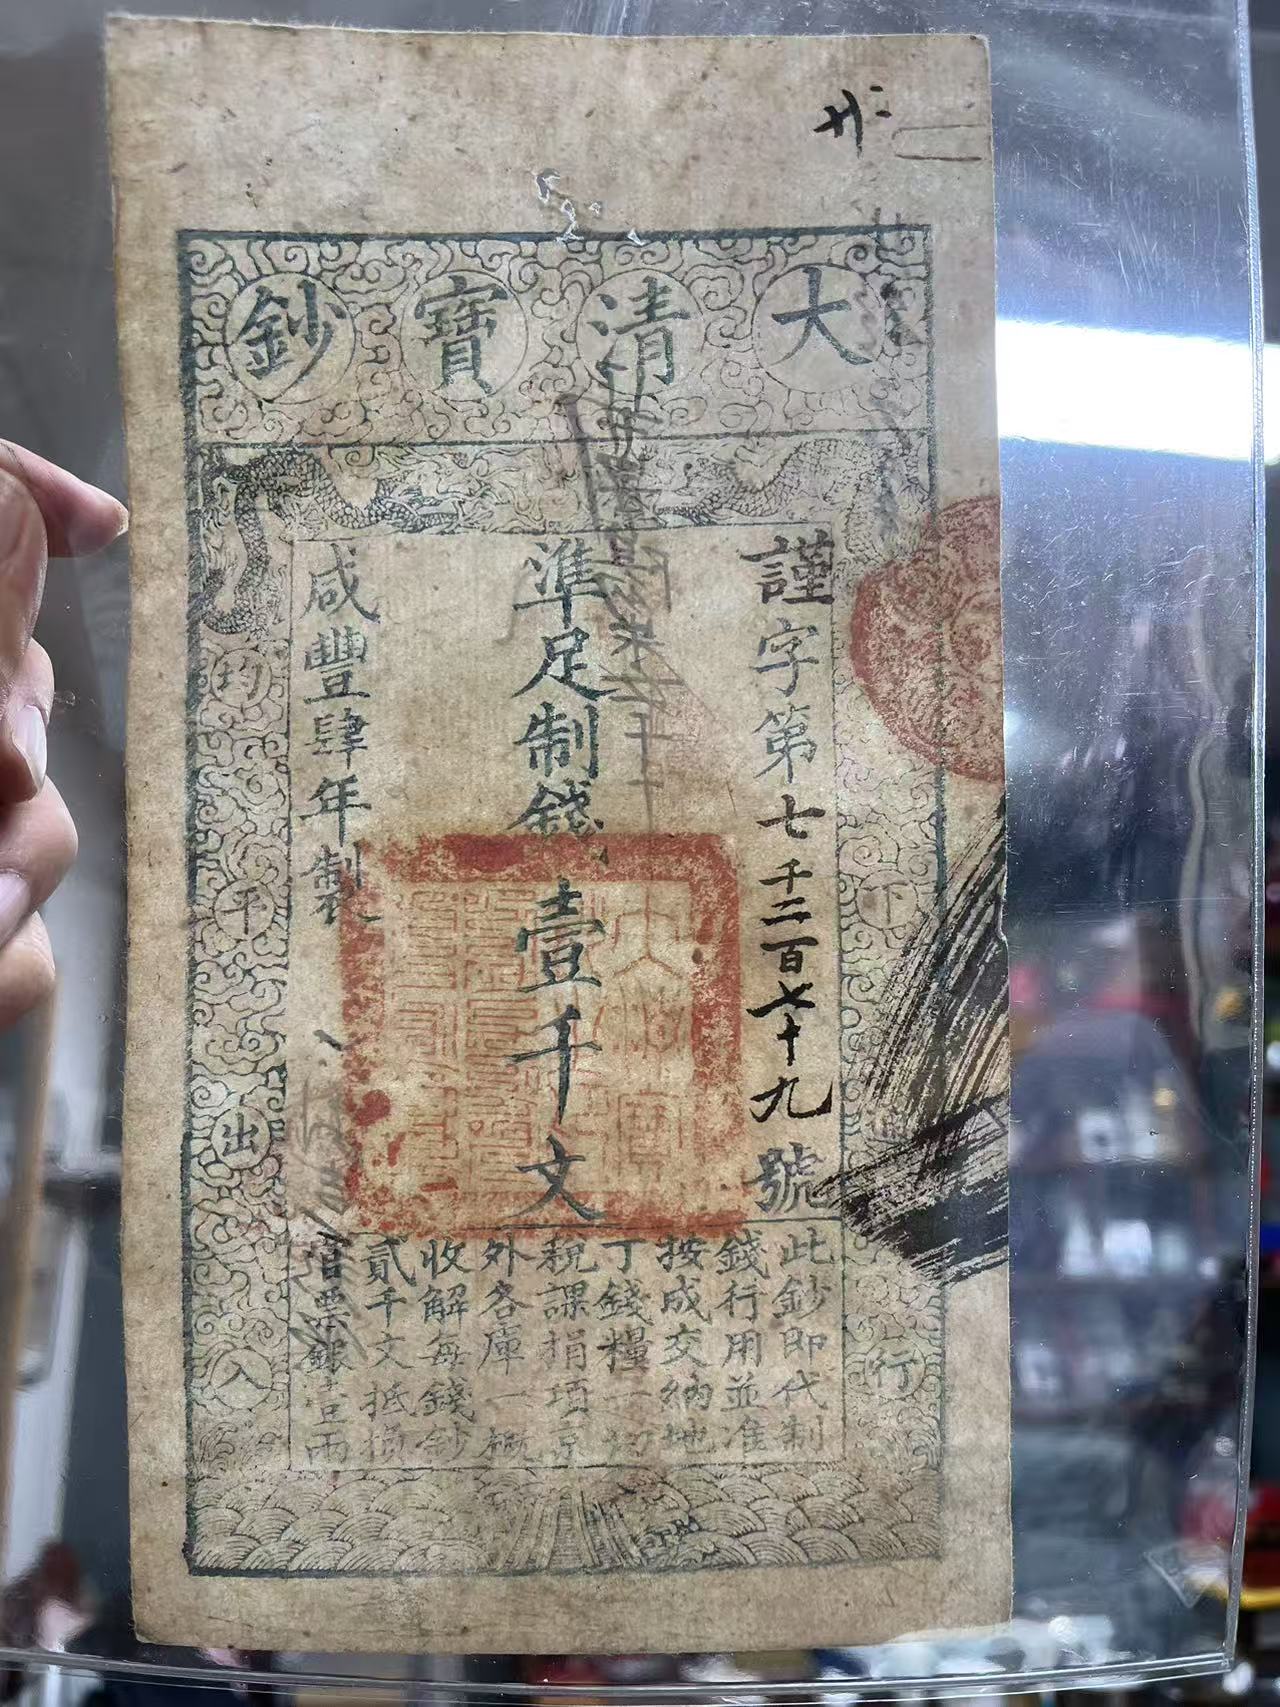 大清寶鈔
謹字第七千二百七十九號
準足制錢壹千文
咸豐肆年製
天下通行
均平出入
此鈔即代制
錢行用並准
按成交納地
丁錢糧一切
稅課捐項京
外各庫一概
收解每錢鈔
貳千文抵換
官票銀壹兩